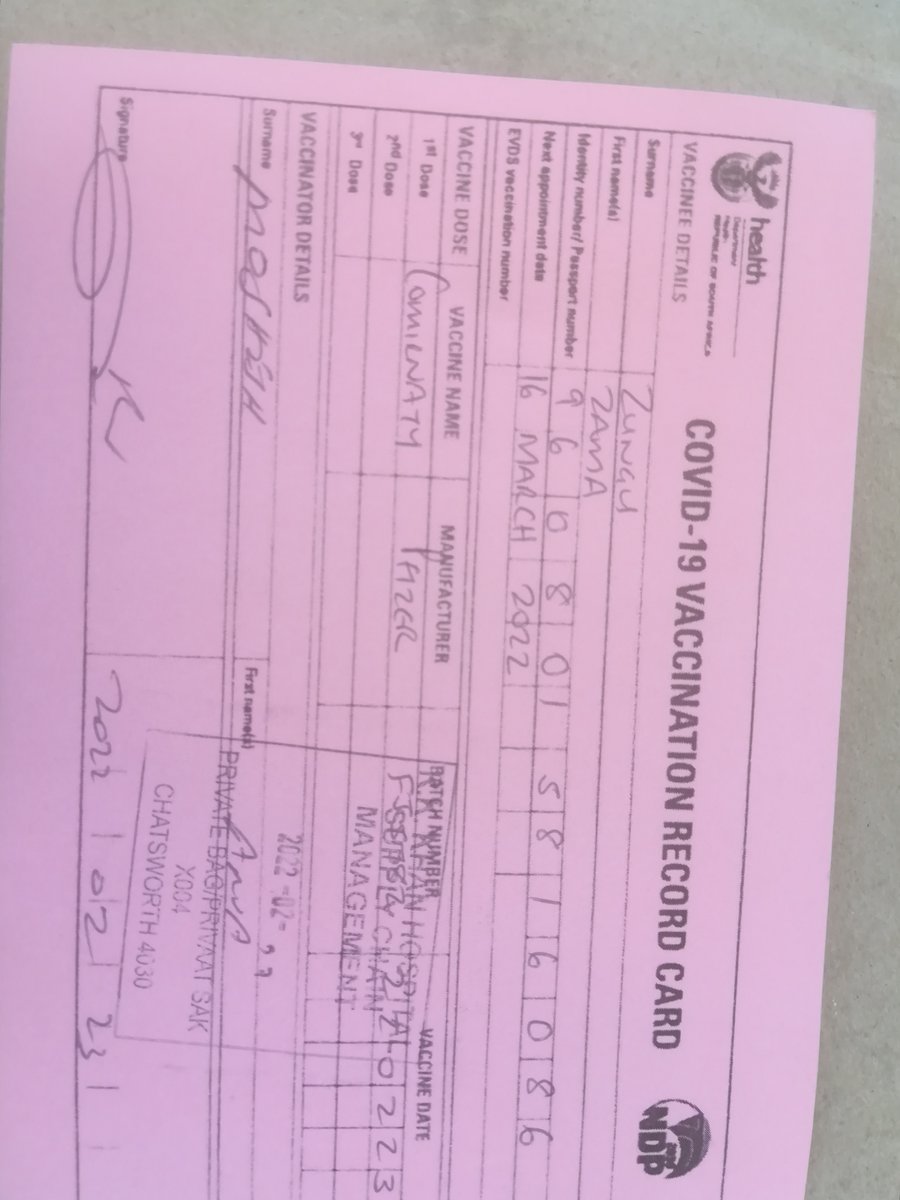 health
Department:
Health
REPUBLIC OF SOUTH AFRICA
COVID-19 VACCINATION RECORD CARD
NDP
VACCINEE DETAILS
Surname ZUNGU
First name(s) ZAMA
Identity number/ Passport number 9 6 0 8 0 1 5 8 1 6 0 8 6
Next appointment date 16 MARCH 2022
EVDS vaccination number
VACCINE DOSE VACCINE NAME MANUFACTURER BATCH NUMBER VACCINE DATE
1st Dose COMIRNATY PFIZER
2nd Dose
3rd Dose
HOSPITAL
SUPPLY CHAIN
MANAGEMENT
2 2 0 2 2 3
VACCINATOR DETAILS
2022 -02-
Surname First name(s)
PRIVATE BAG/PRIVAAT SAK
X004
CHATSWORTH 4030
Signature 2022 / 02 / 23